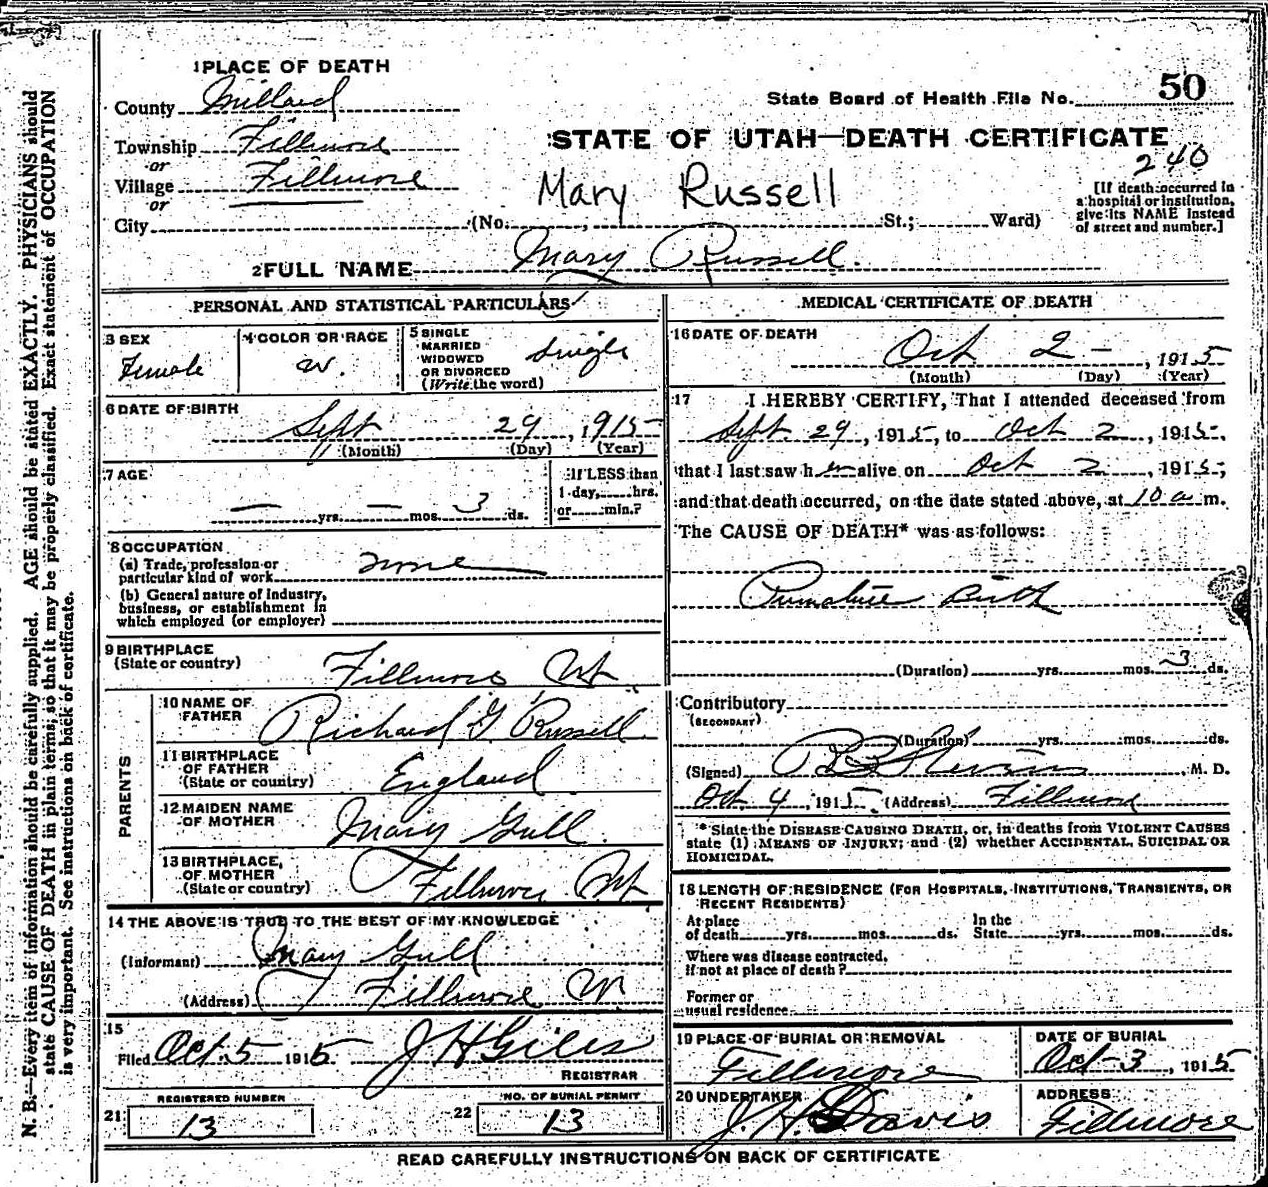 1 PLACE OF DEATH
County Millard
Township Fillmore
or
Village Fillmore
or
City (No. , St.; Ward)
State Board of Health File No. 50
STATE OF UTAH—DEATH CERTIFICATE
240
Mary Russell
[If death occurred in
a hospital or institution,
give its NAME instead
of street and number.]
2 FULL NAME Mary Russell.
PERSONAL AND STATISTICAL PARTICULARS
3 SEX
Female
4 COLOR OR RACE
W.
5 SINGLE
MARRIED
WIDOWED
OR DIVORCED
(Write the word)
Single
6 DATE OF BIRTH
Sept 29, 1915
(Month) (Day) (Year)
7 AGE
— yrs. — mos. 3 ds.
If LESS than
1 day, hrs.
or min.?
8 OCCUPATION
(a) Trade, profession or
particular kind of work none
(b) General nature of industry,
business, or establishment in
which employed (or employer)
9 BIRTHPLACE
(State or country)
Fillmore Ut.
PARENTS
10 NAME OF
FATHER
Richard G. Russell
11 BIRTHPLACE
OF FATHER
(State or country)
England
12 MAIDEN NAME
OF MOTHER
Mary Gull.
13 BIRTHPLACE,
OF MOTHER
(State or country)
Fillmore Ut
14 THE ABOVE IS TRUE TO THE BEST OF MY KNOWLEDGE
(Informant) Mary Gull
(Address) Fillmore Ut
15
Filed Oct. 5 1915 J H Giles
REGISTRAR
REGISTERED NUMBER
21 13
NO. OF BURIAL PERMIT
22 13
MEDICAL CERTIFICATE OF DEATH
16 DATE OF DEATH
Oct 2 — , 1915
(Month) (Day) (Year)
17 I HEREBY CERTIFY, That I attended deceased from
Sept. 29, 1915, to Oct 2, 1915,
that I last saw h er alive on Oct 2, 1915;
and that death occurred, on the date stated above, at 10 a m.
The CAUSE OF DEATH* was as follows:
Premature Birth
(Duration) yrs. mos. 3 ds.
Contributory
(SECONDARY)
(Duration) yrs. mos. ds.
(Signed) Stevens M. D.
Oct 4, 1915 (Address) Fillmore
* State the DISEASE CAUSING DEATH, or, in deaths from VIOLENT CAUSES
state (1) MEANS OF INJURY; and (2) whether ACCIDENTAL, SUICIDAL OR
HOMICIDAL.
18 LENGTH OF RESIDENCE (FOR HOSPITALS, INSTITUTIONS, TRANSIENTS, OR
RECENT RESIDENTS)
At place
of death yrs. mos. ds.
In the
State yrs. mos. ds.
Where was disease contracted,
if not at place of death?
Former or
usual residence
19 PLACE OF BURIAL OR REMOVAL
Fillmore
DATE OF BURIAL
Oct-3, 1915
20 UNDERTAKER
J. H. Davis
ADDRESS
Fillmore
READ CAREFULLY INSTRUCTIONS ON BACK OF CERTIFICATE
N. B.—Every item of information should be carefully supplied. AGE should be stated EXACTLY. PHYSICIANS should
state CAUSE OF DEATH in plain terms, so that it may be properly classified. Exact statement of OCCUPATION
is very important. See instructions on back of certificate.